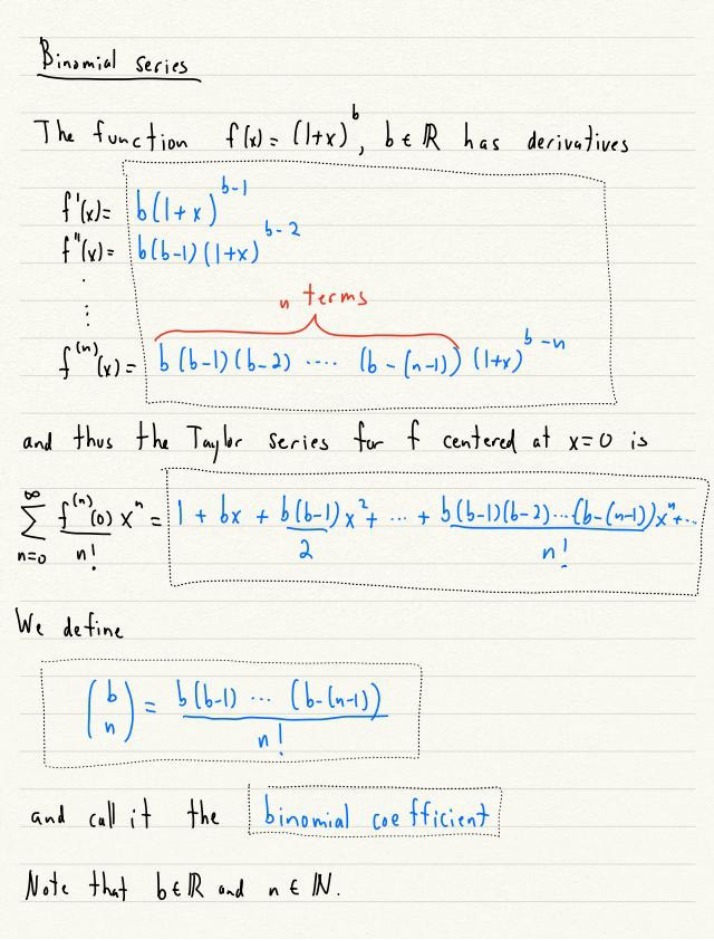 Binomial series
The function f(x) = (1+x)^b, b ∈ ℝ has derivatives
f'(x) = b(1+x)^{b-1}
f''(x) = b(b-1)(1+x)^{b-2}
⋮
n terms
f^{(n)}(x) = b(b-1)(b-2) .... (b-(n-1)) (1+x)^{b-n}
and thus the Taylor series for f centered at x=0 is
∑_{n=0}^{∞} \frac{f^{(n)}(0)}{n!} x^n = 1 + bx + \frac{b(b-1)}{2} x^2 + ... + \frac{b(b-1)(b-2)...(b-(n-1))}{n!} x^n + ...
We define
\binom{b}{n} = \frac{b(b-1) ... (b-(n-1))}{n!}
and call it the binomial coefficient
Note that b ∈ ℝ and n ∈ ℕ.